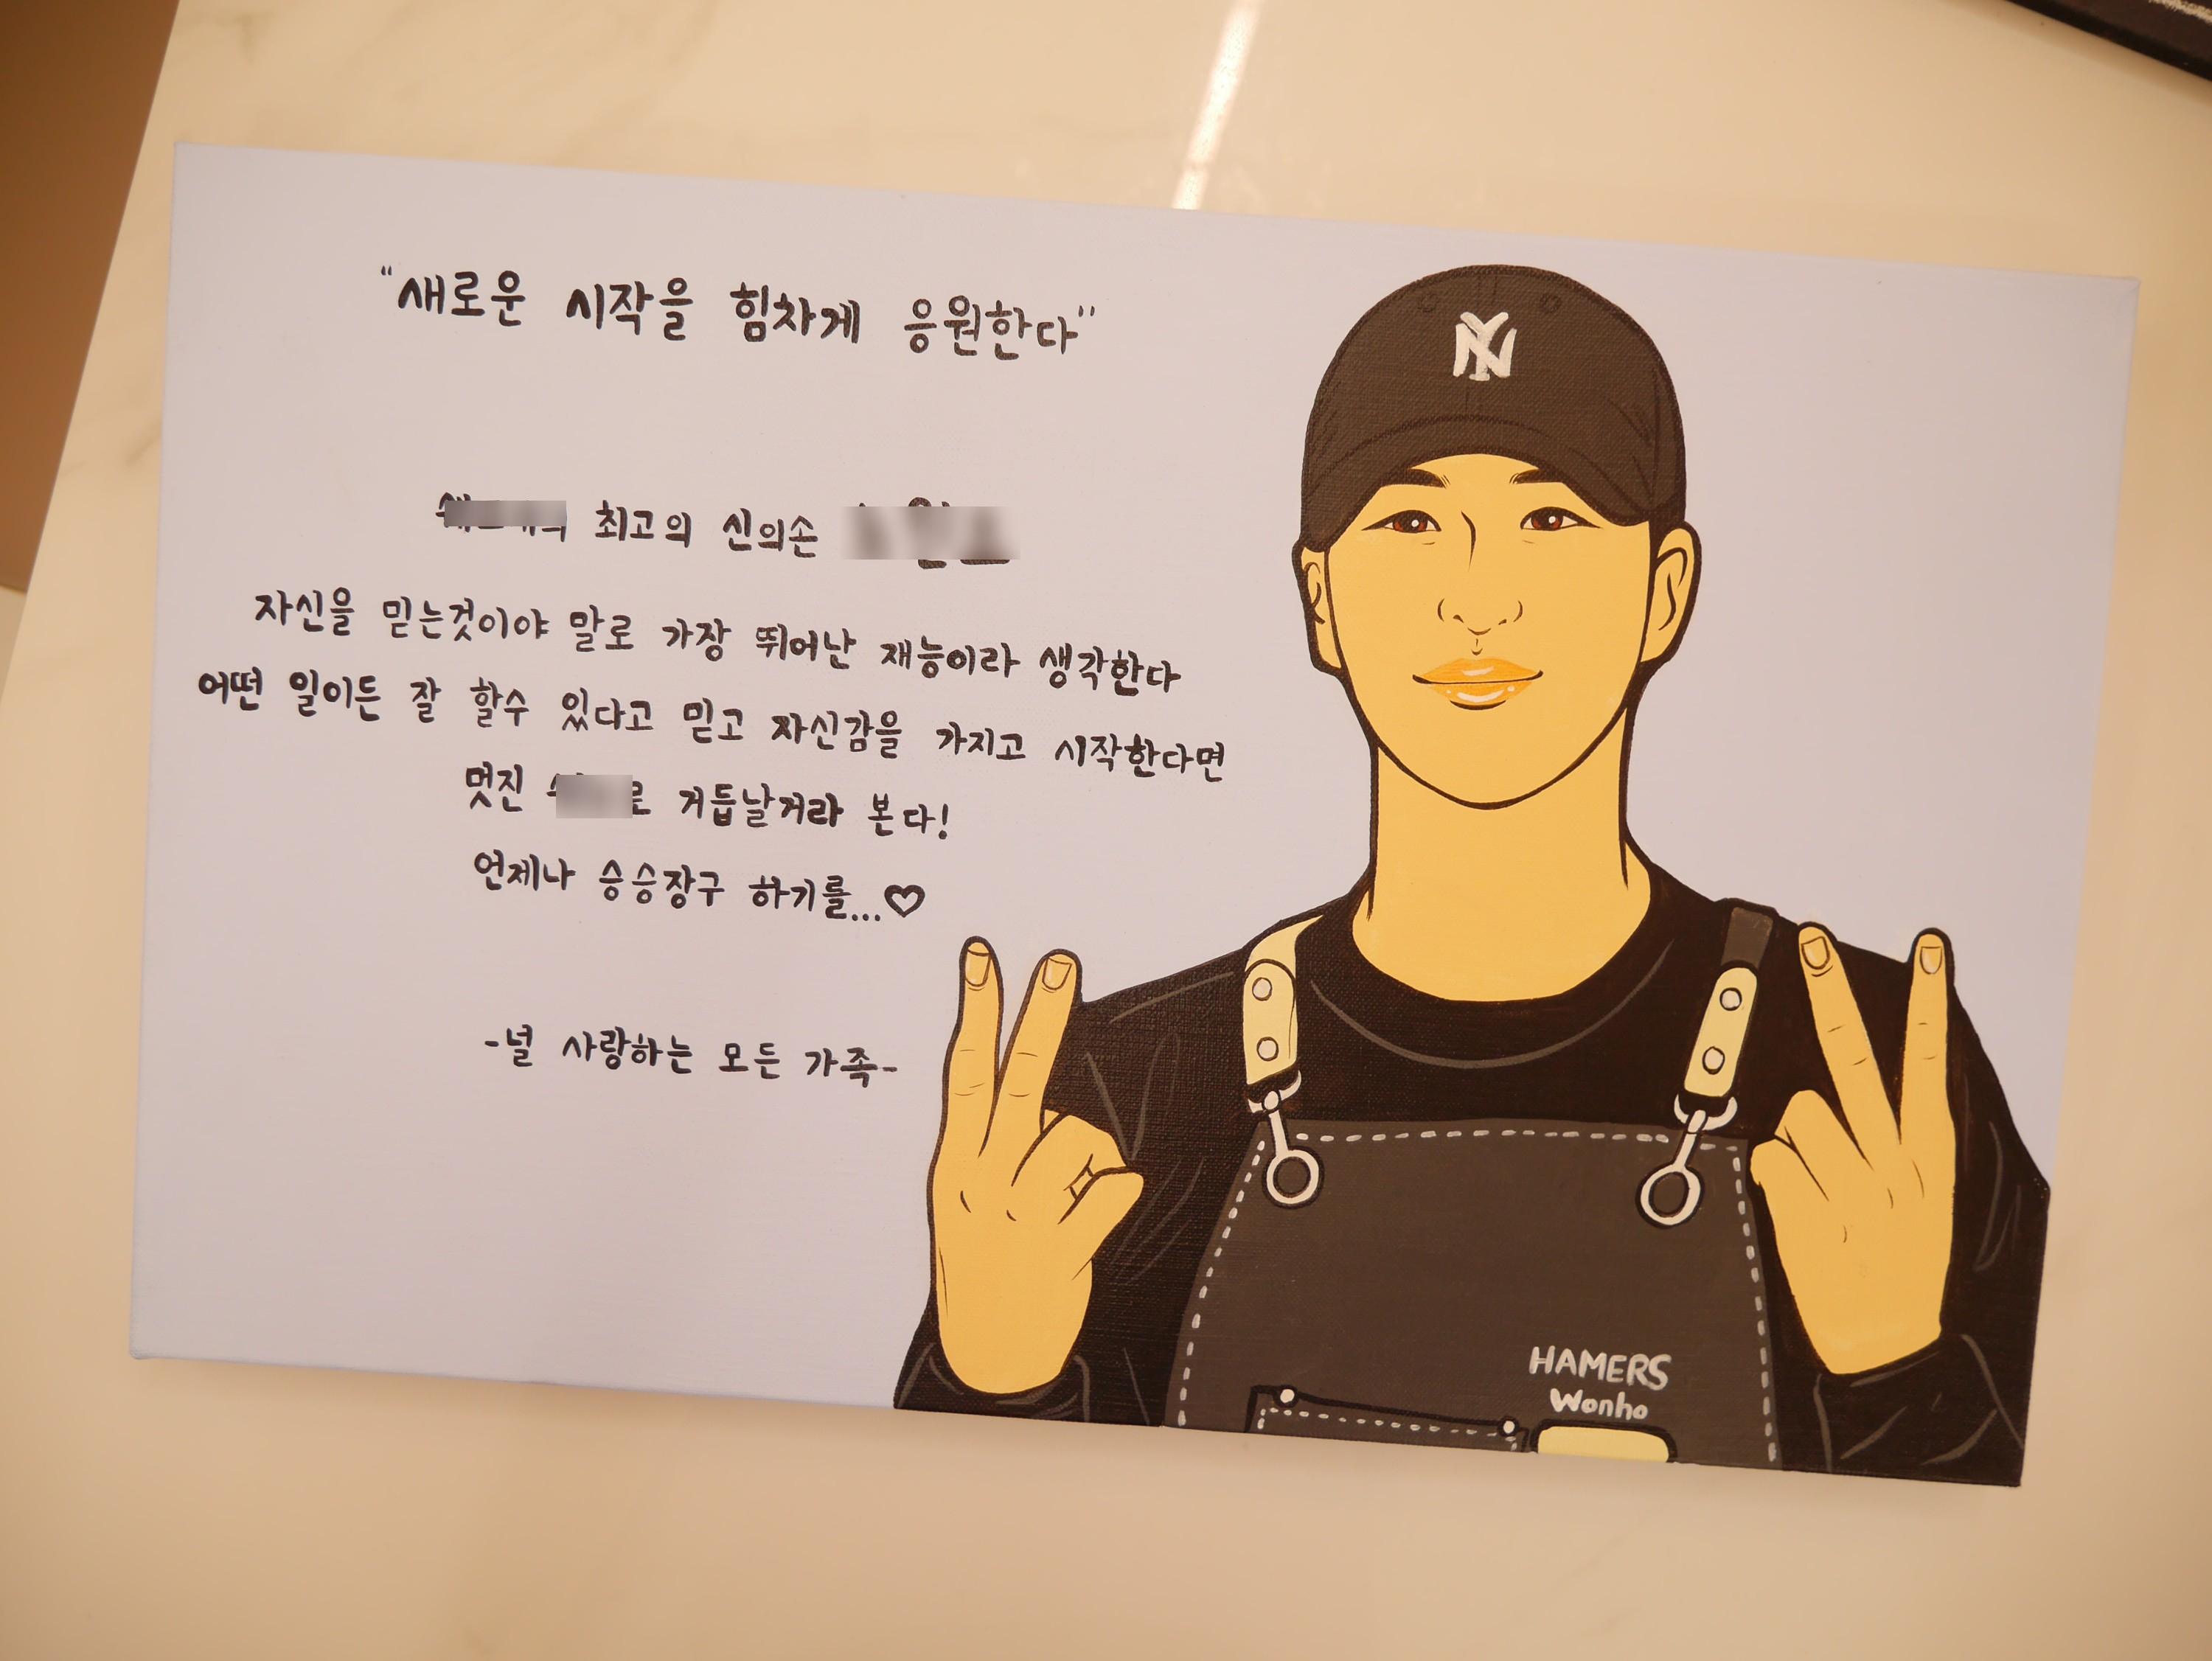 "새로운 시작을 힘차게 응원한다"
최고의 신의손
자신을 믿는것이야 말로 가장 뛰어난 재능이라 생각한다
어떤 일이든 잘 할수 있다고 믿고 자신감을 가지고 시작한다면
멋진 로 거듭날거라 본다!
언제나 승승장구 하기를...♡
-널 사랑하는 모든 가족-
NY
HAMERS
Wonho